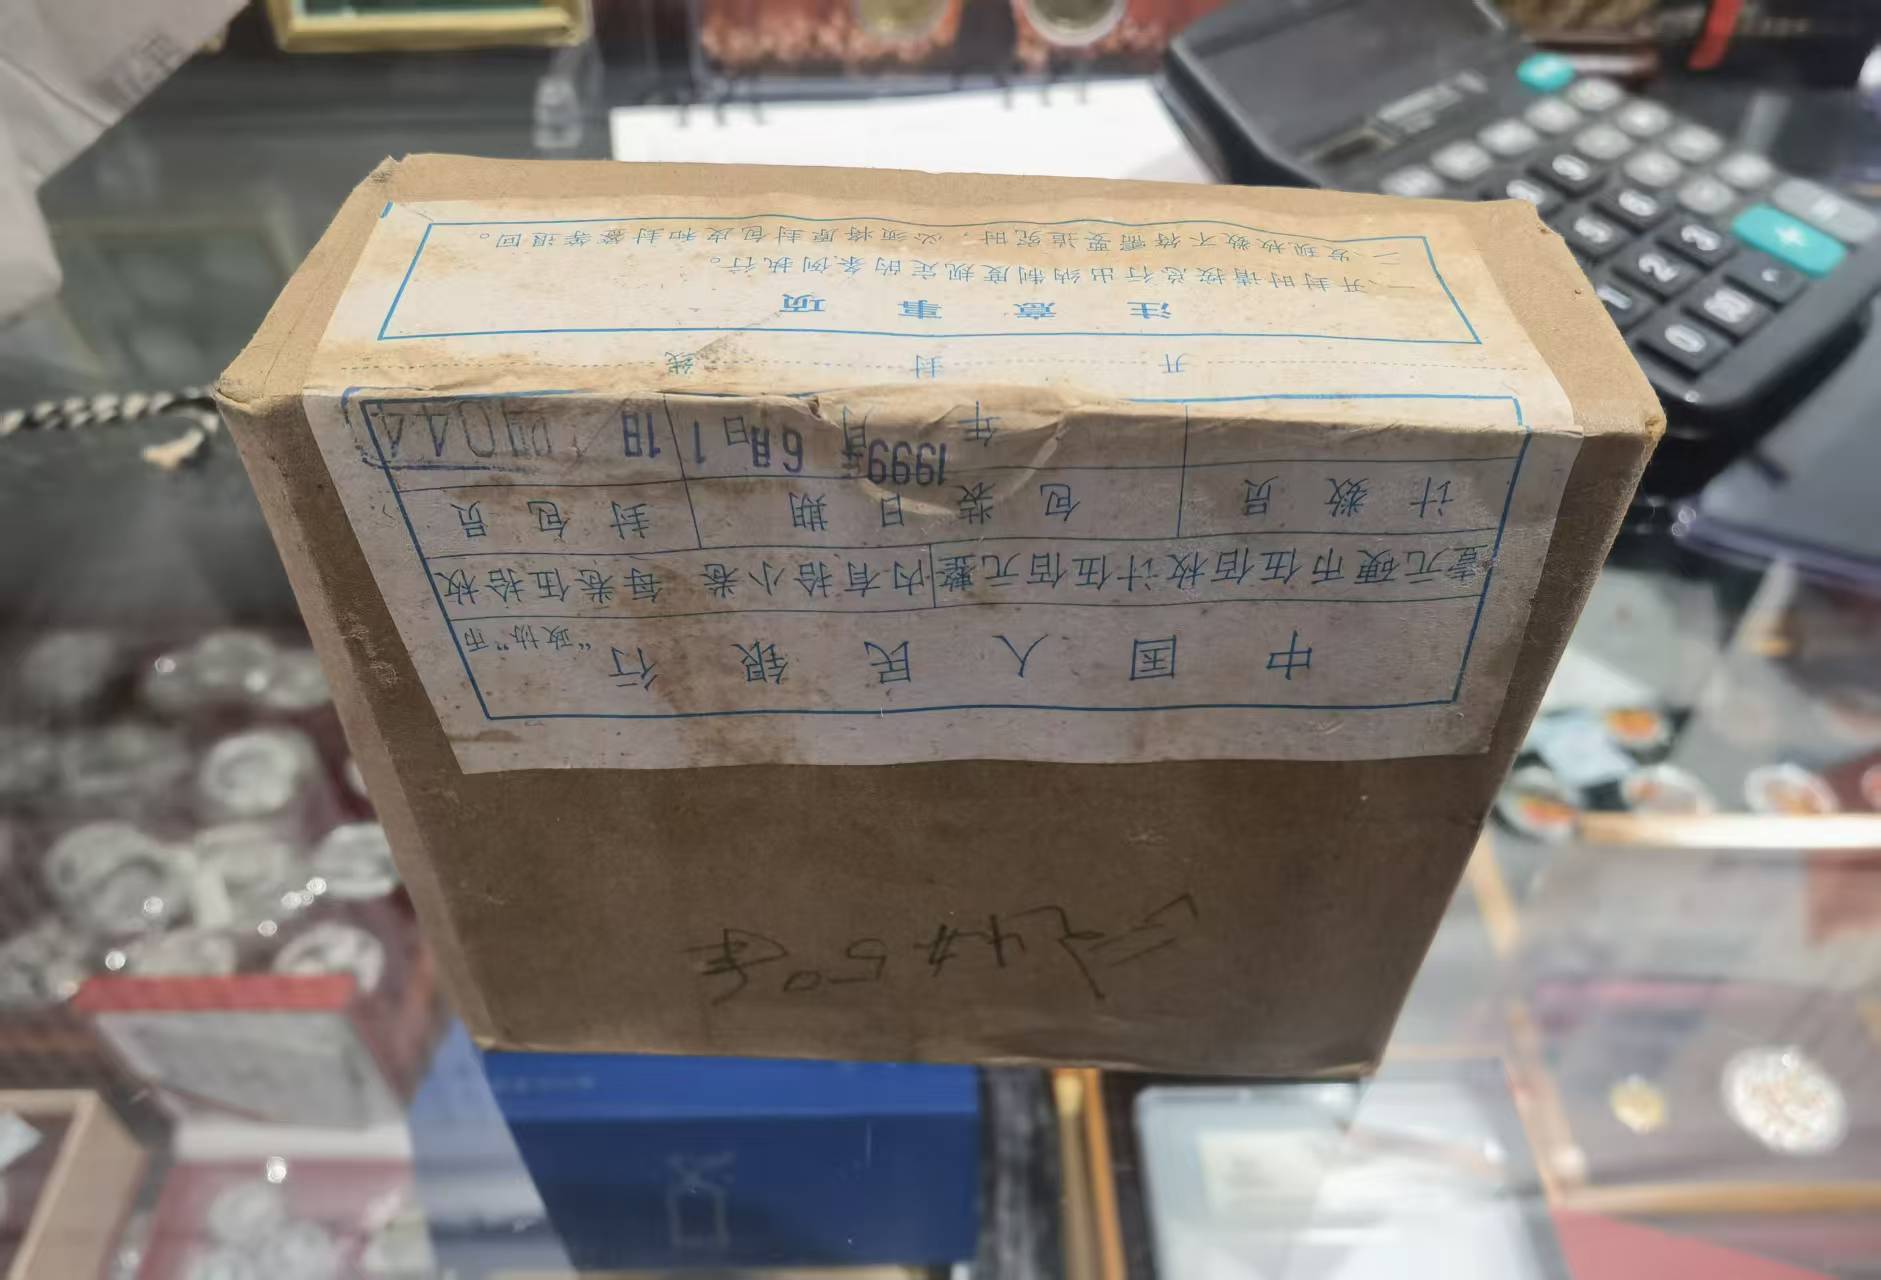 中国人民银行 “政协”币
壹元硬币伍佰枚计伍佰元整 内有拾小卷 每卷伍拾枚
计数员 包装日期 封包员
年 月 日
1999年 6月 1 1日
开封线
注意事项
一、开封时请按总行出纳制度规定的条例执行。
二、发现枚数不符需要追究时，必须将原封包皮和封签等退回。